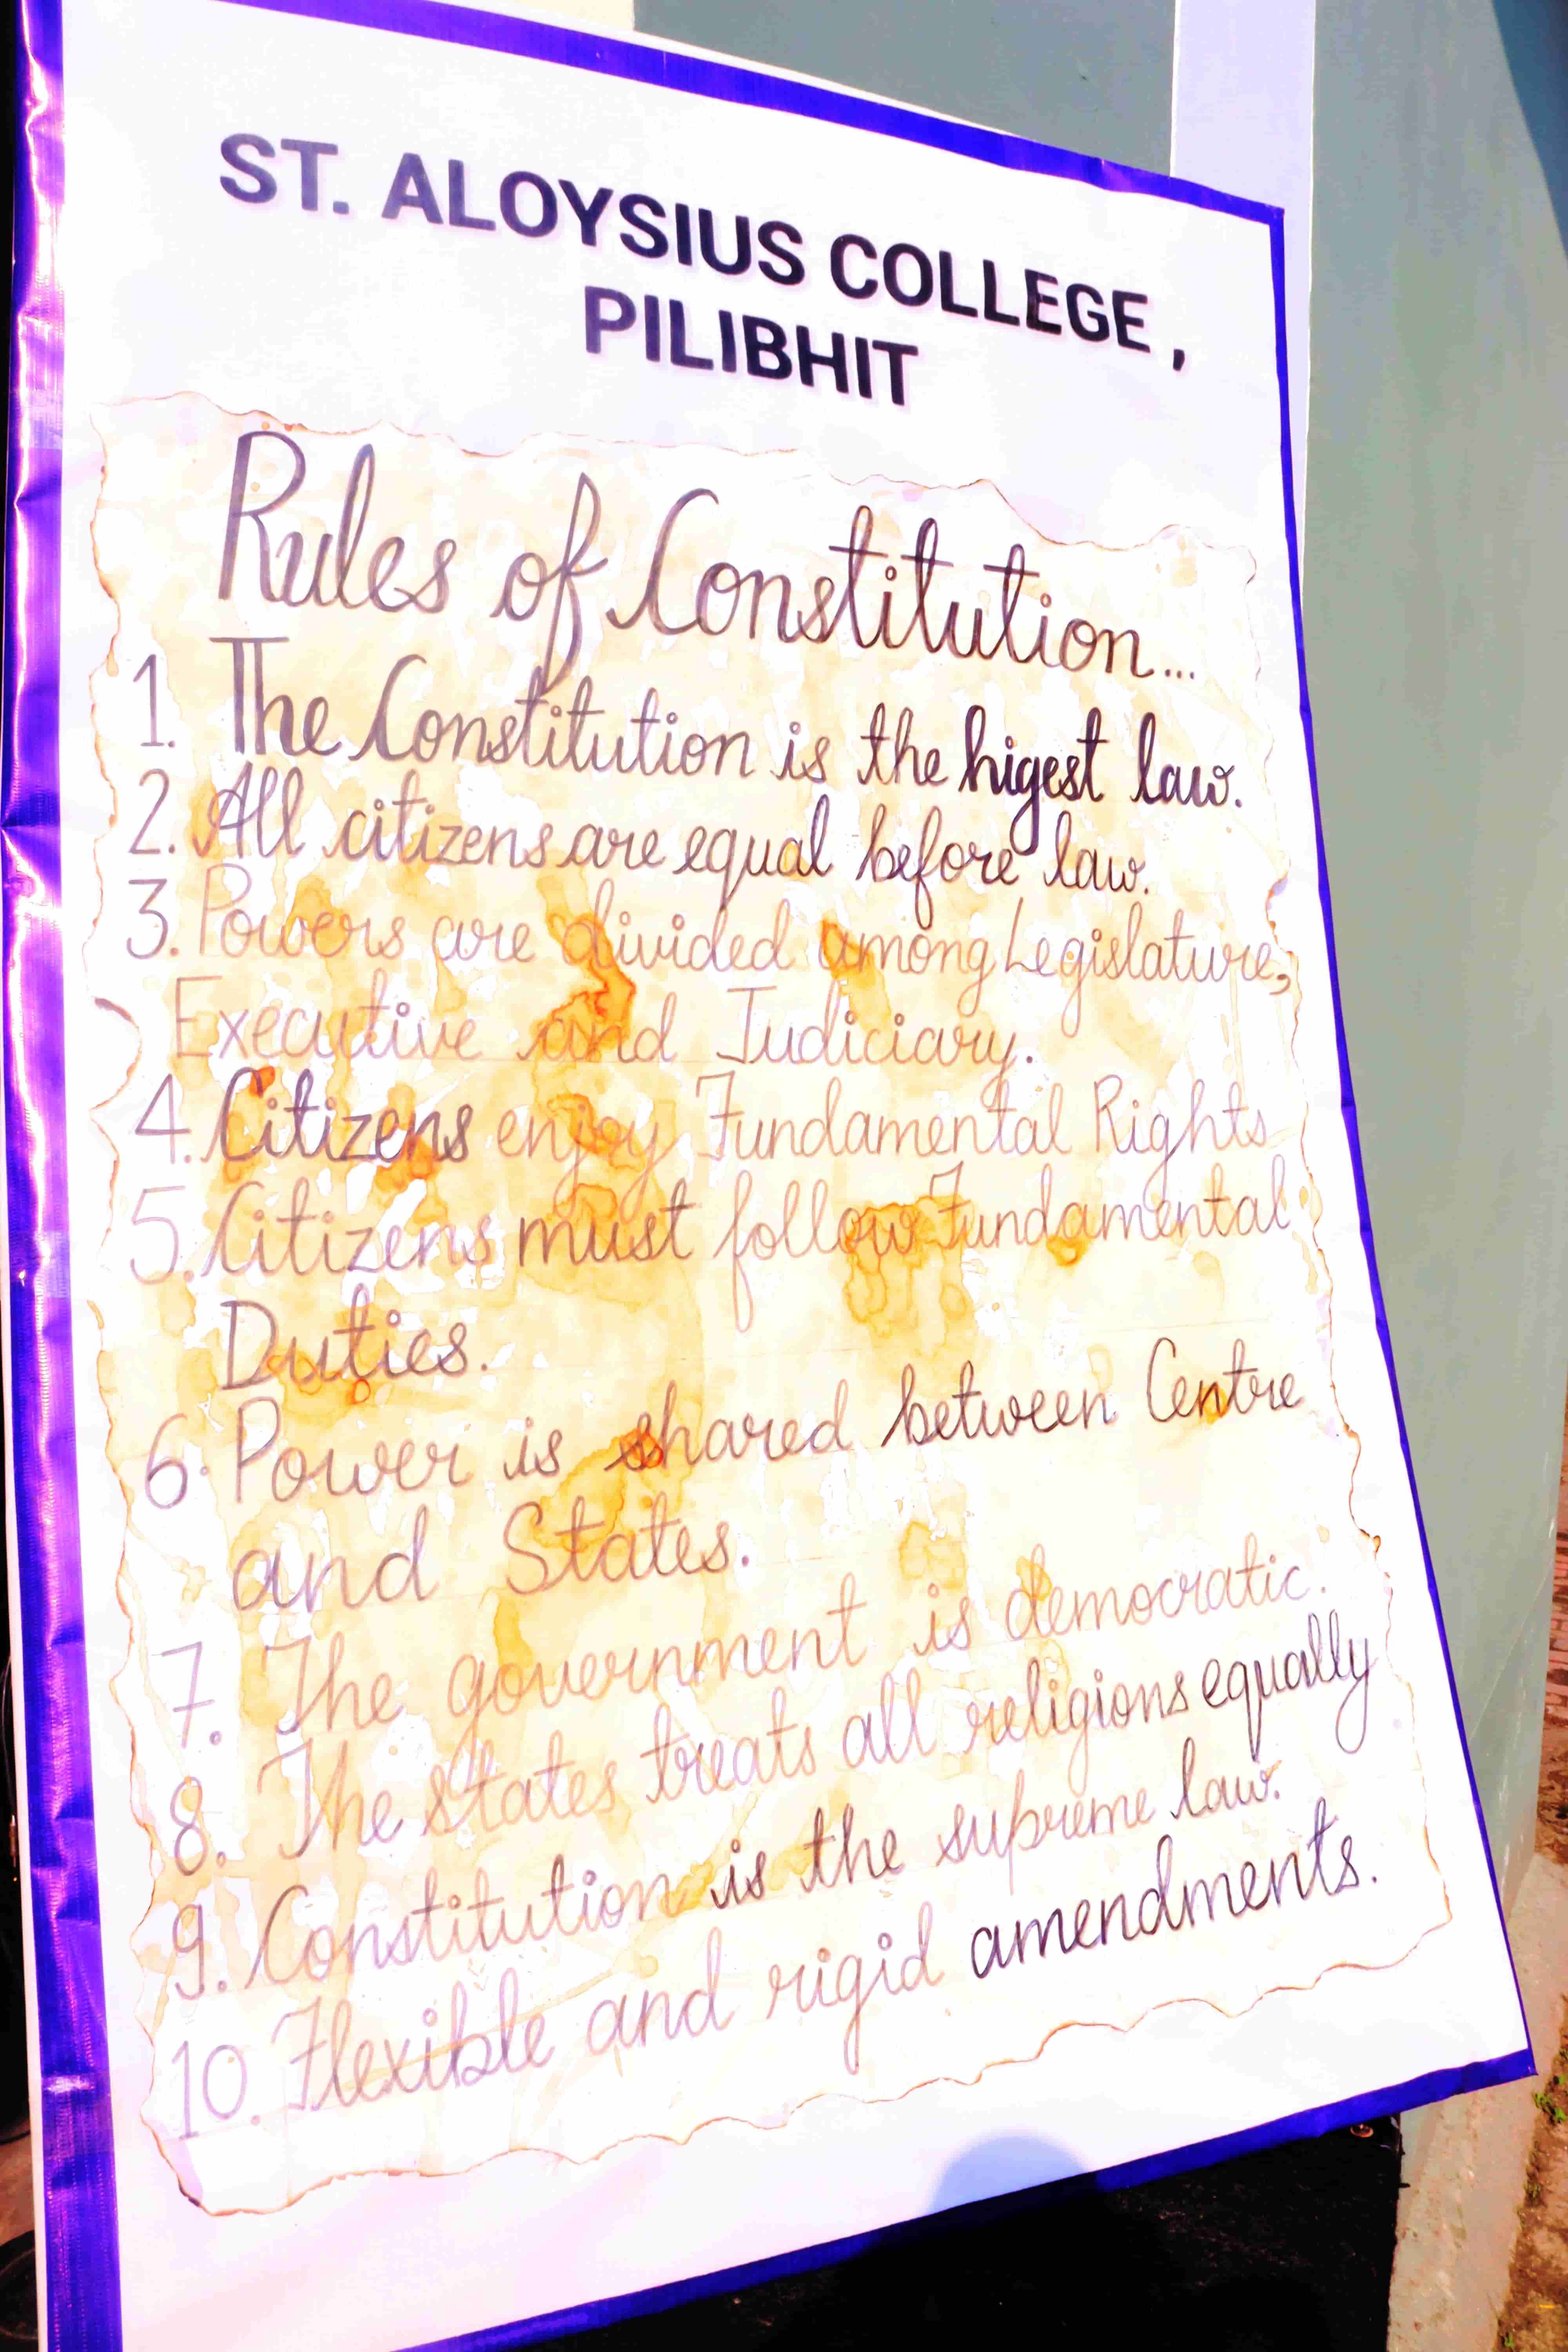 ST. ALOYSIUS COLLEGE ,
PILIBHIT
Rules of Constitution...
1. The Constitution is the higest law.
2. All citizens are equal before law.
3. Powers are divided among Legislature,
Executive and Judiciary.
4. Citizens enjoy Fundamental Rights
5. Citizens must follow Fundamental
Duties.
6. Power is shared between Centre
and States.
7. The government is democratic.
8. The States treats all religions equally
9. Constitution is the supreme law.
10. Flexible and rigid amendments.